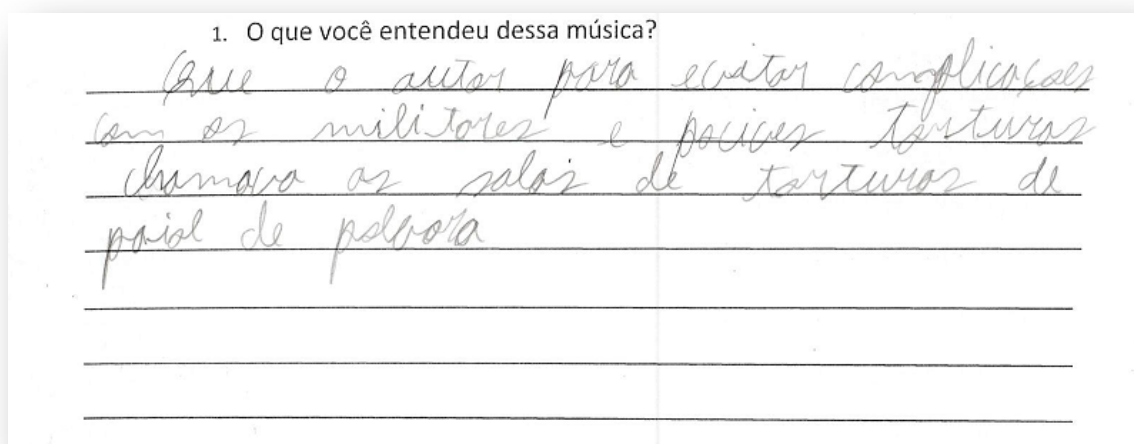 1. O que você entendeu dessa música?
Que o autor para evitar complicações
com os militares e pocives torturas
chamava as salas de torturas de
paiol de polvora